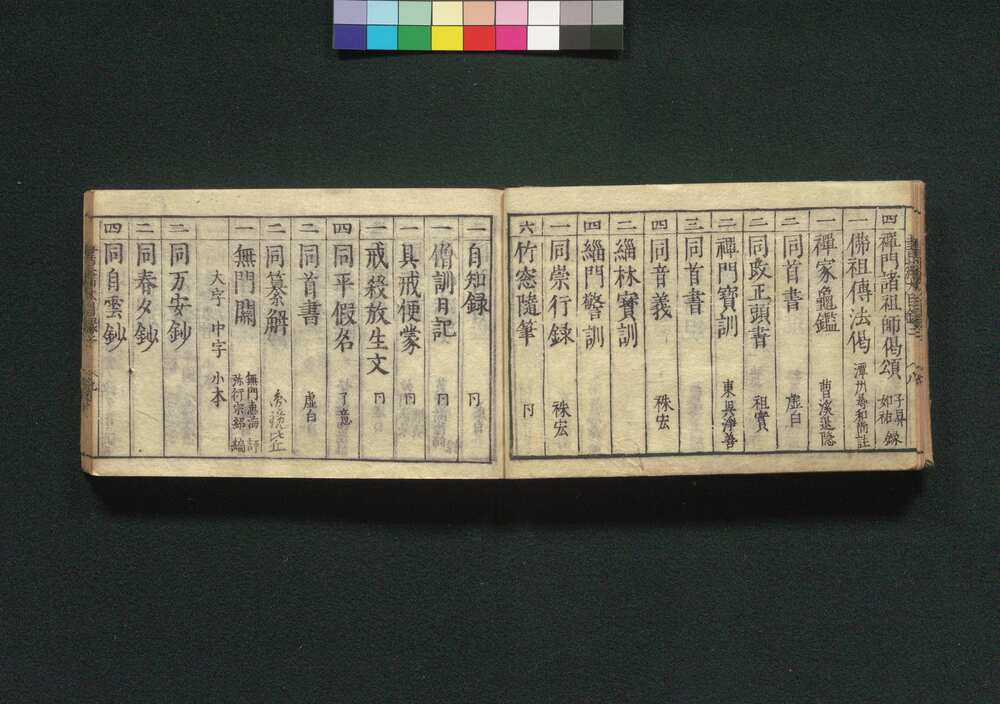 四 禪門諸祖師偈頌 子昇 如祐 錄
一 佛祖傳法偈 潭州善和尚註
一 禪家龜鑑 曹溪退隱
二 同首書 虚白
二 同改正頭書 祖實
二 禪門寶訓 東吳淨善
三 同首書
四 同音義 袾宏
二 緇林寳訓
四 緇門警訓
一 同崇行録 袾宏
六 竹窓隨筆 同
一 自知録 同
一 僧訓日記 同
一 具戒便蒙 同
一 戒殺放生文 同
四 同平假名 了意
二 同首書 虚白
二 同纂解
一 無門關 無門惠海 評 弥衍宗紹 編
大字 中字 小本
二 同万安鈔
二 同春夕鈔
四 同自雲鈔